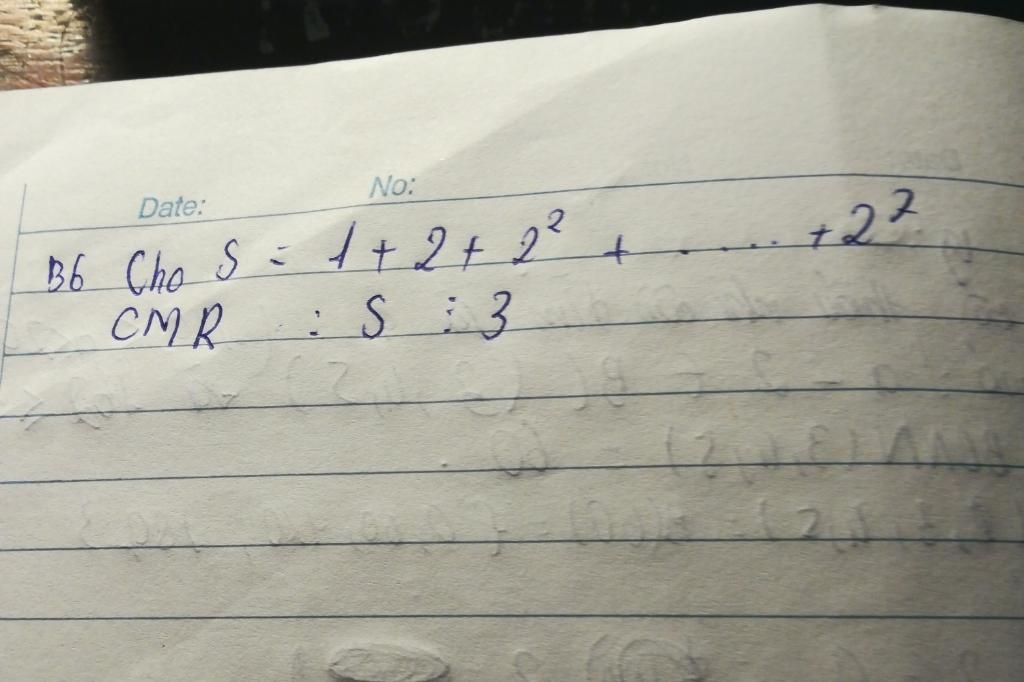 Date: No:
B6 Cho S = 1 + 2 + 2² + ..... + 2⁷
CMR : S ⋮ 3